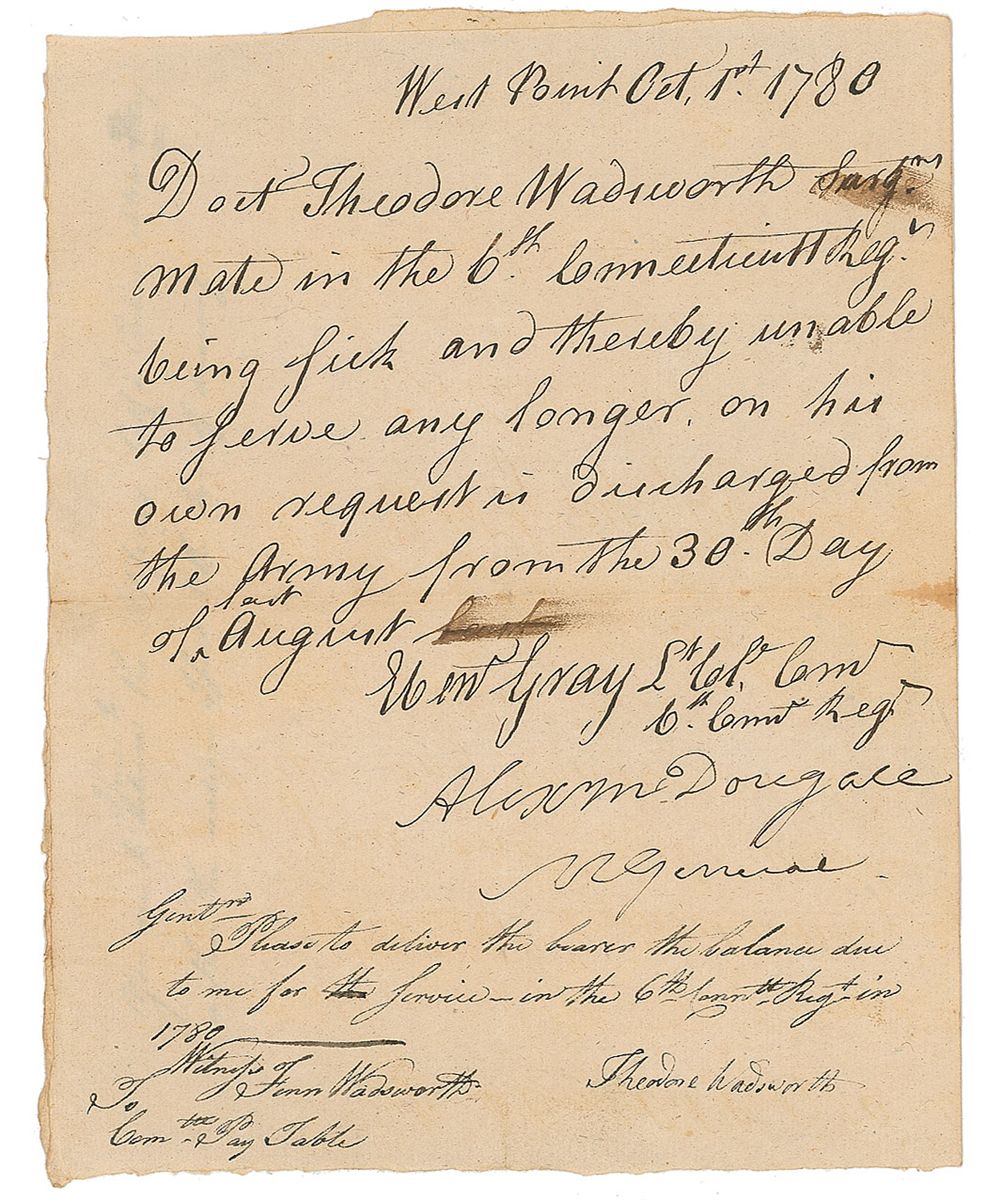 West Point Oct, 1st. 1780
Doct Theodore Wadsworth Surg.ns
mate in the 6.th Connecticutt Reg.t
being sick and thereby unable
to serve any longer, on his
own request is discharged from
the Army from the 30.th Day
of ^last August
Ebenr Gray Lt. Col. Comt
6th. Connt Regt
Alexr McDougall
M General
Gentm
Please to deliver the bearer the balance due
to me for the Service in the 6th Conntt Regt in
1780
Witness of
Fenn Wadsworth Theodore Wadsworth
To
Comtte Pay Table